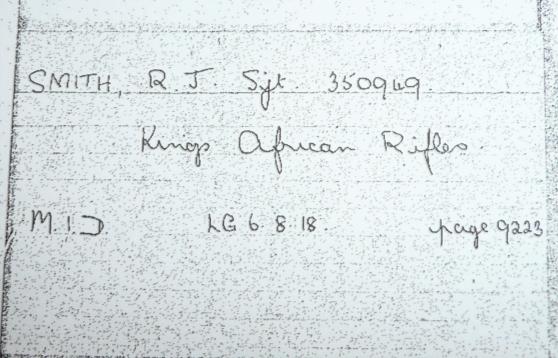 SMITH, R. J. Sgt. 350949.
Kings African Rifles.
M.I.D LG 6.8.18. page 9223